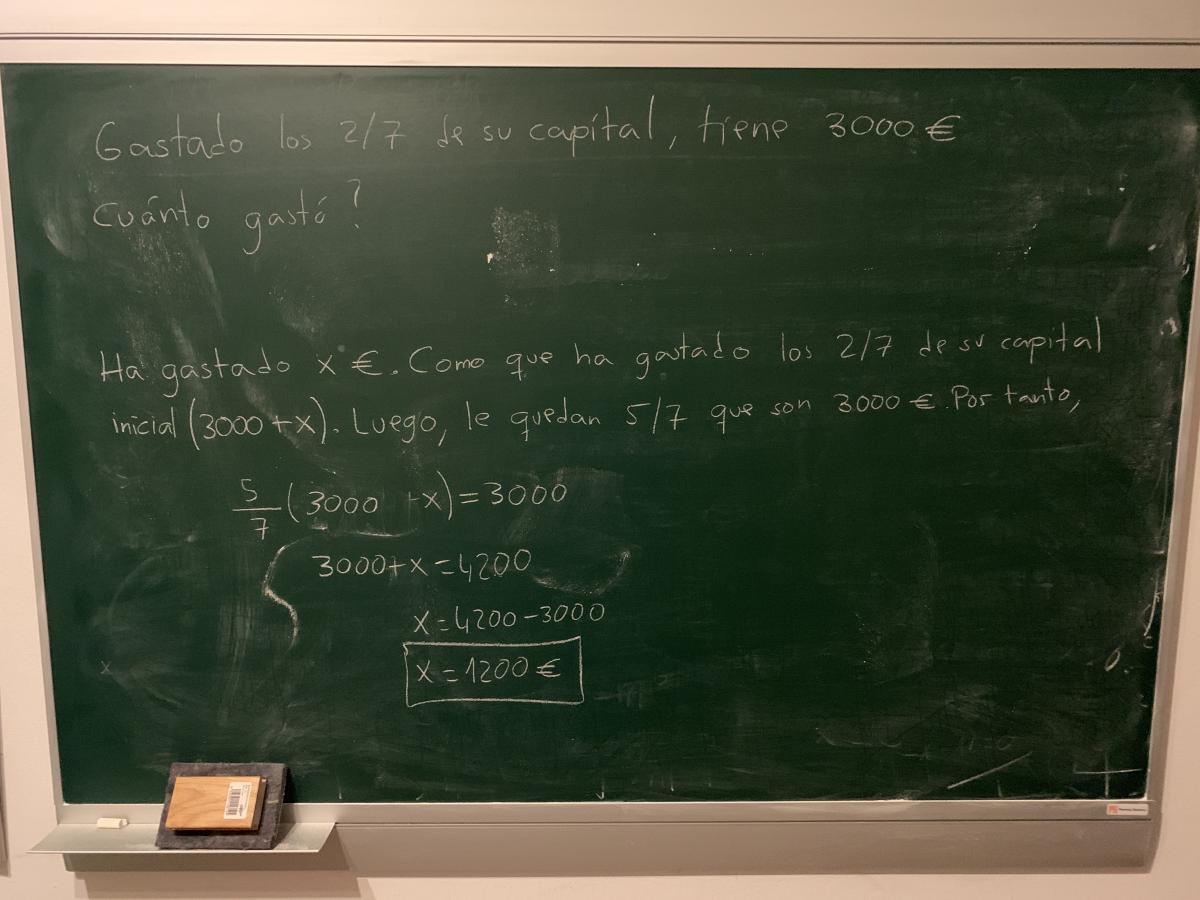 Gastado los 2/7 de su capital, tiene 3000 €
cuánto gastó?
Ha gastado x €. Como que ha gastado los 2/7 de su capital
inicial (3000 + x). Luego, le quedan 5/7 que son 3000 €. Por tanto,
5/7 (3000 + x) = 3000
3000 + x = 4200
x = 4200 - 3000
x = 1200 €